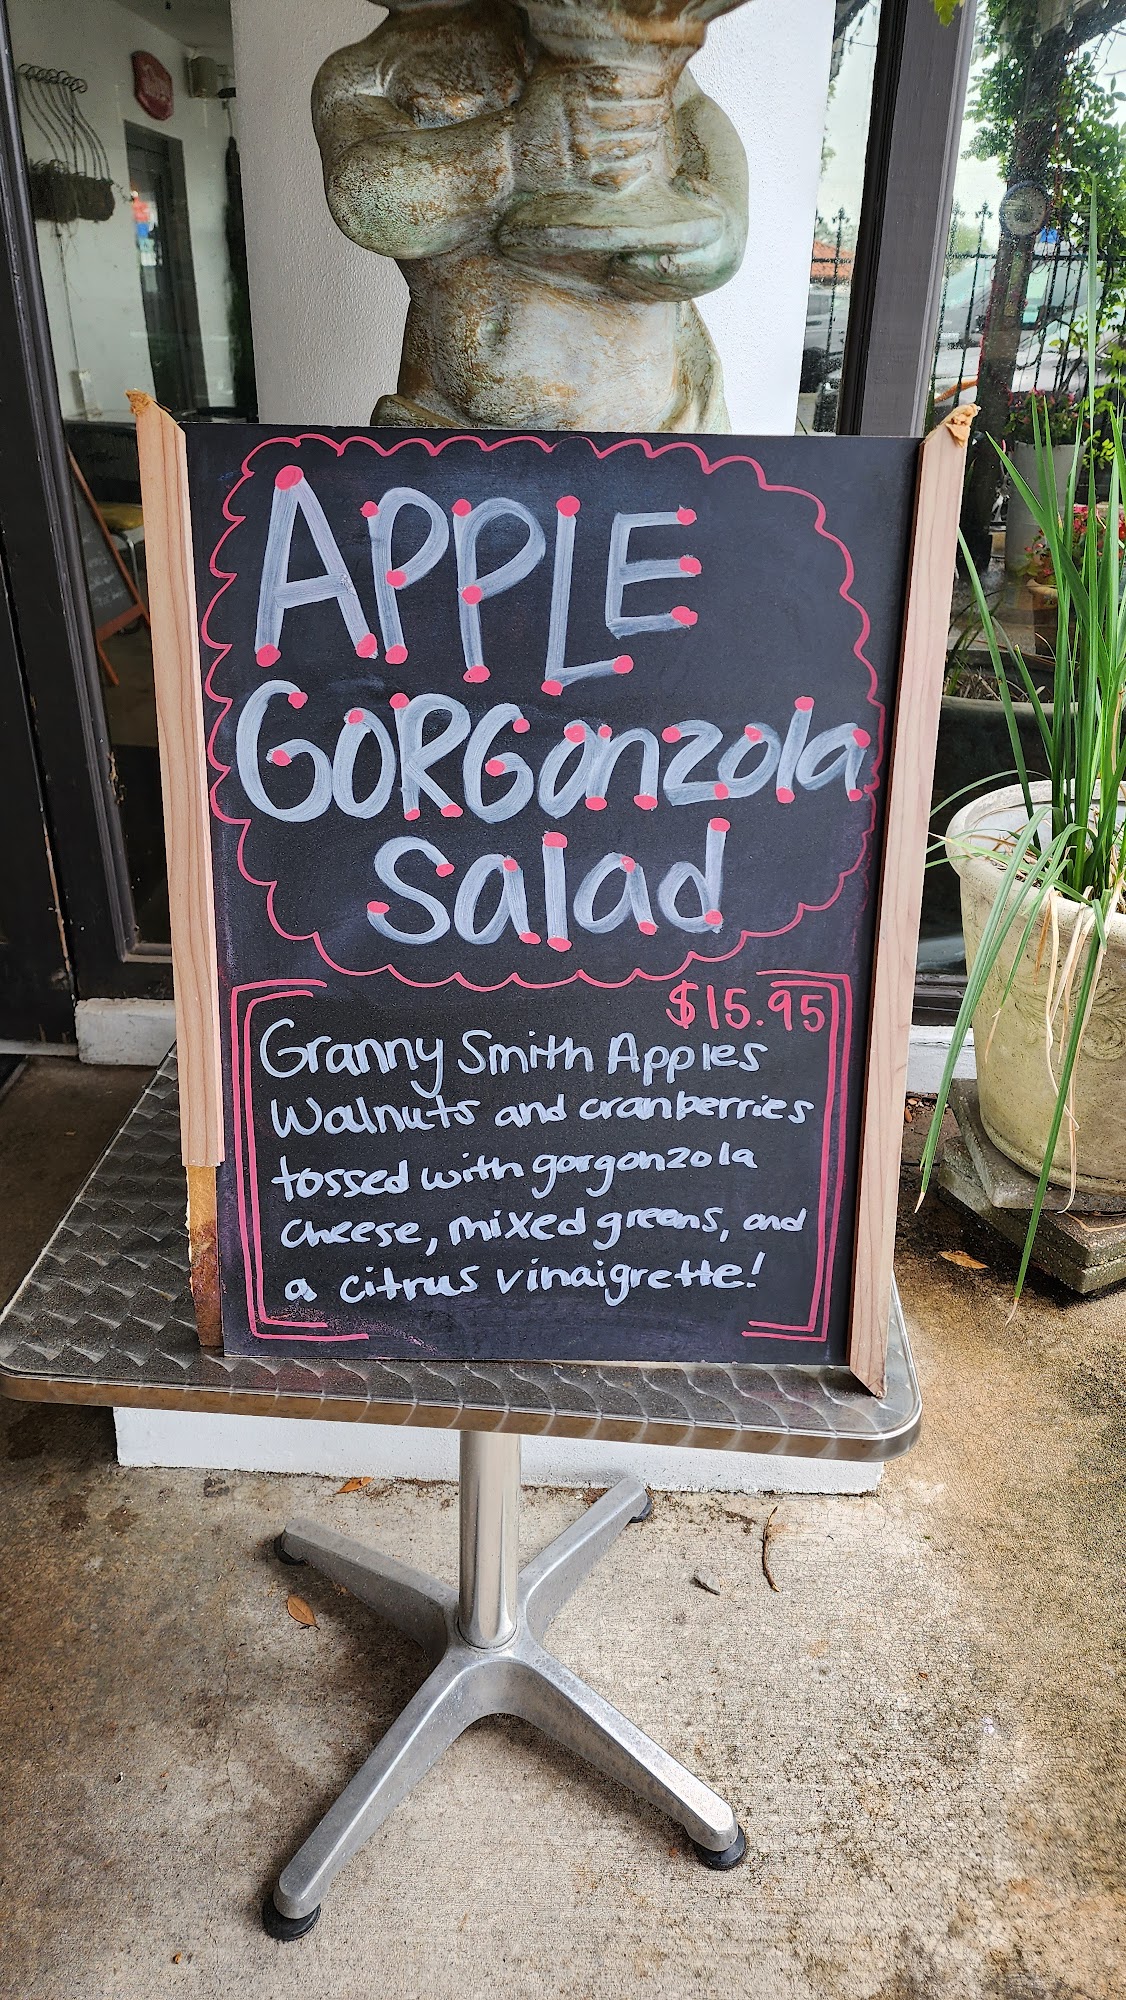 APPLE
GORGonzola
Salad
$15.95
Granny Smith Apples
Walnuts and cranberries
tossed with gorgonzola
cheese, mixed greens, and
a citrus vinaigrette!